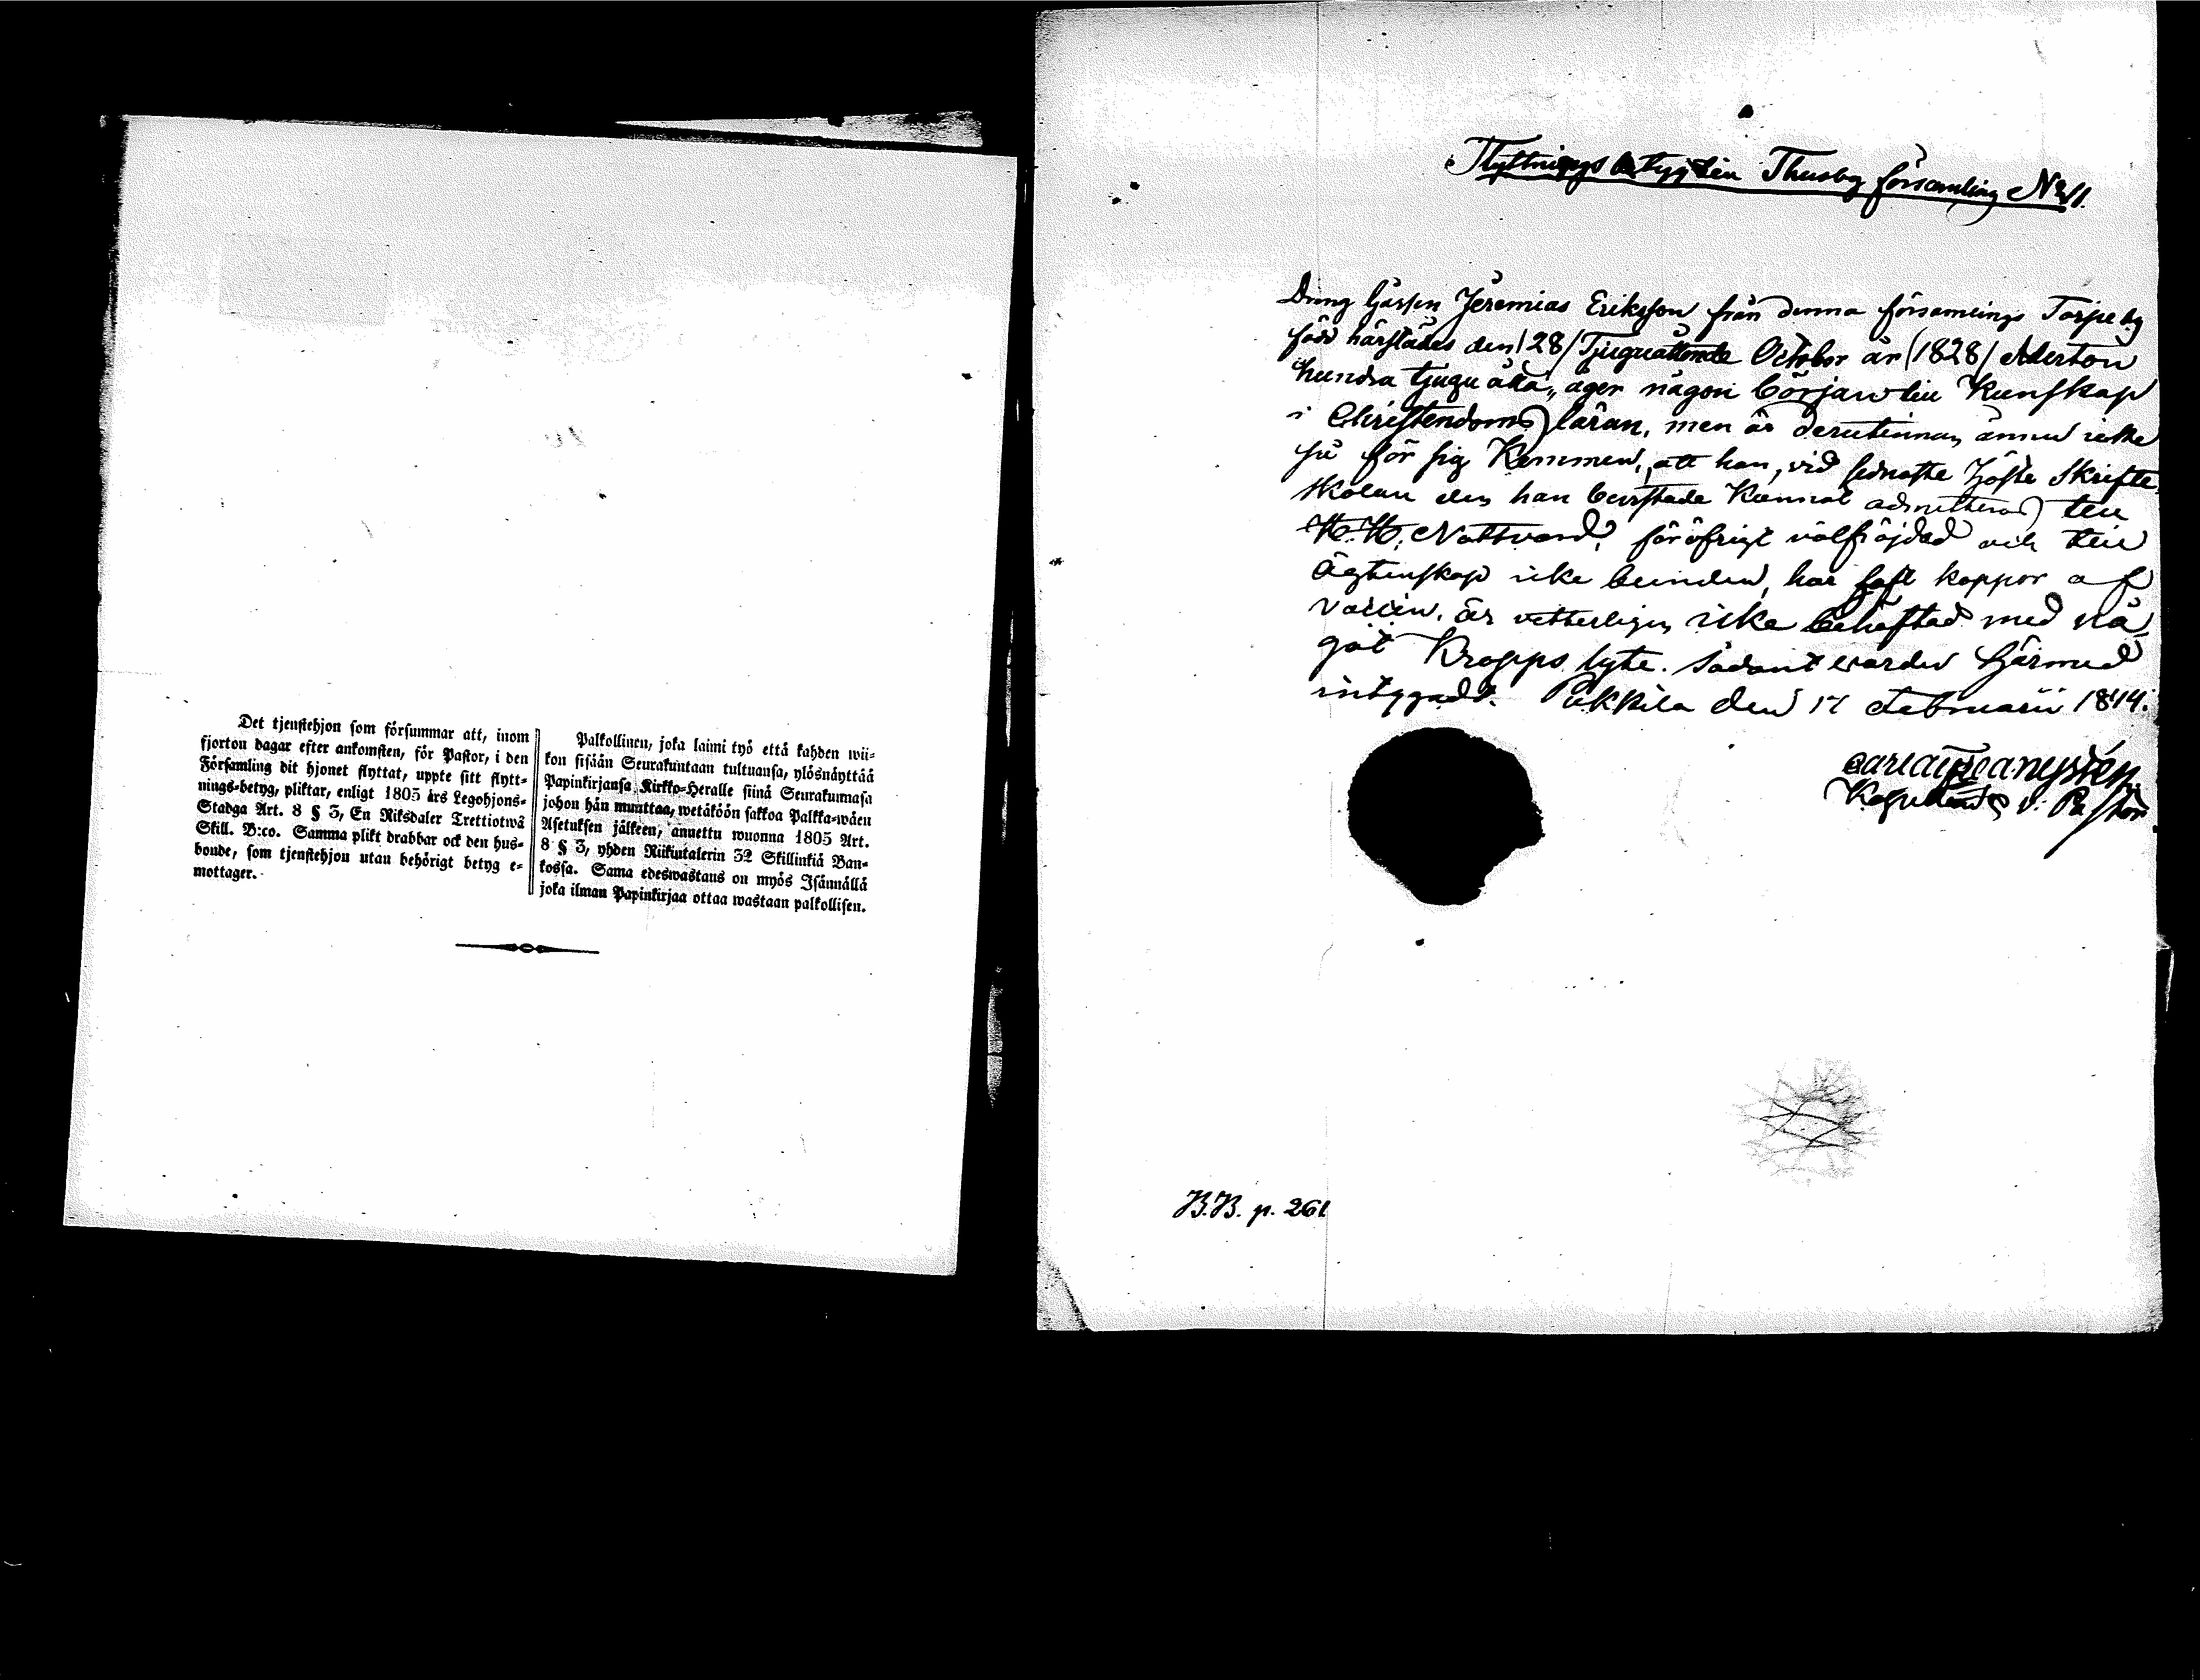 Det tjenstehjon som försummar att, inom
fjorton dagar efter ankomsten, för Pastor, i den
Församling dit hjonet flyttat, uppte sitt flytt-
nings-betyg, pliktar, enligt 1805 års Legohjons-
Stadga Art. 8 § 3, En Riksdaler Trettiotwå
Skill. B:co. Samma plikt drabbar ock den hus-
bonde, som tjenstehjon utan behörigt betyg e-
mottager.
Palkollinen, joka laimi lyö että kahden wii-
kon sisään Seurakuntaan tultuansa, ylösnäyttää
Papinkirjansa Kirkko-Heralle siinä Seurakunnasa
johon hän muuttaa, wetäköön sakkoa Palkka-wäen
Asetuksen jälkeen, annettu wuonna 1805 Art.
8 § 3, yhden Riikintalerin 32 Skillinkiä Ban-
kossa. Sama edeswastaus on myös Isännällä
joka ilman Papinkirjaa ottaa wastaan palkollisen.
Flyttnings betyg till Thusby församling No 11.
Dräng Gåssen Jeremias Eriksson från denna församlings Torpe by
född härstädes den /28/ Tjuguåttonde October år /1828/ Aderton
hundra tjugu åtta, äger någon början till Kunskap
i Christendoms läran, men är derutinnan ännu icke
så för sig Kommen, att han, vid sednaste Höste Skrifte
skolan den han bevistade kunnat admitteras till
H. H. Nattvard; föröfrigt välfräjdad och till
Ägtenskap icke bunden, har haft koppor af
vaccin, är vetterligen icke behäftad med nå
got Kropps lyte. Sådant warder härmed
intygadt. Pukkila den 17 Februarii 1844.
v. Pastor
B.B. p. 261